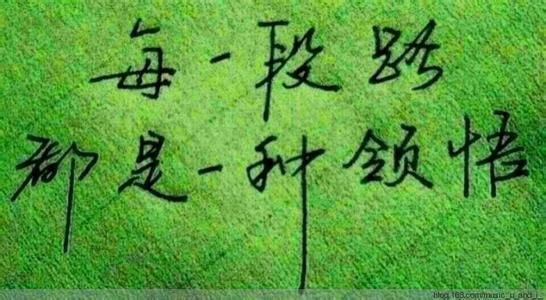 每一段路
都是一种领悟
blog.163.com/music_u_and_i